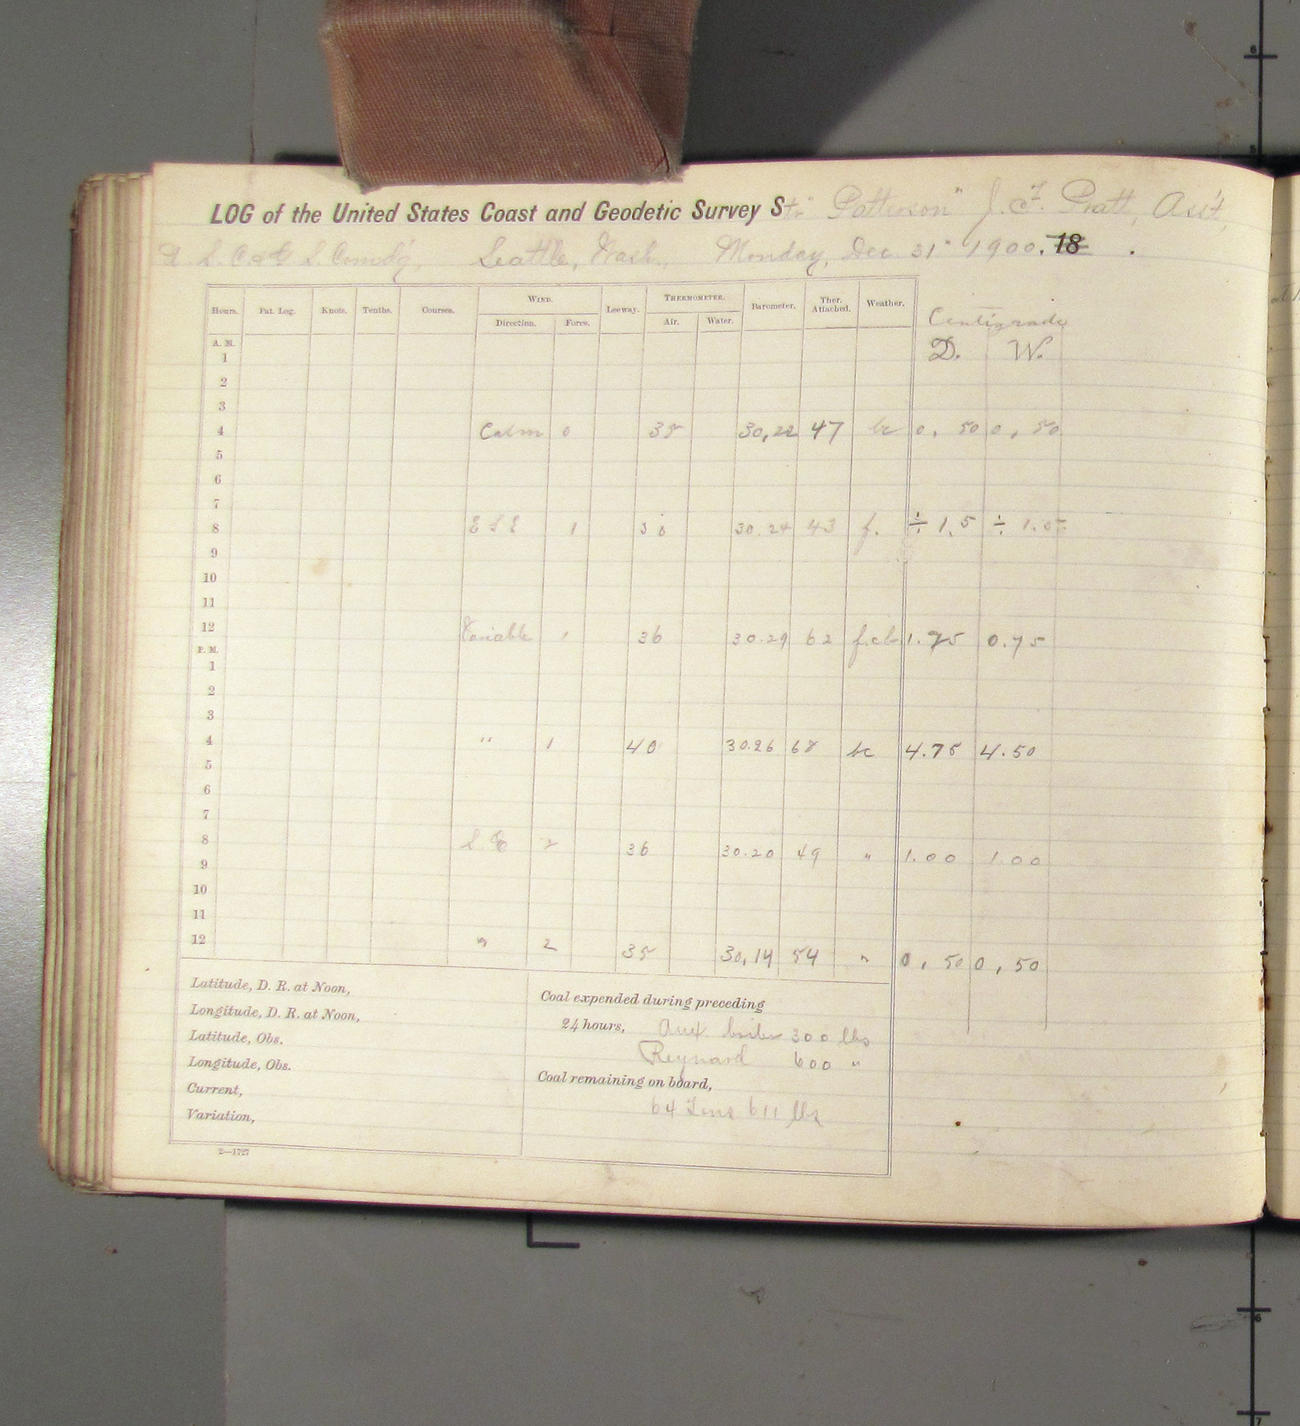 LOG of the United States Coast and Geodetic Survey Str "Patterson" J. F. Pratt, Ass't,
U. S. C. & G. S. Comd'g, Seattle, Wash., Monday, Dec. 31" 1900. 18 .
Hours. Pat. Log. Knots. Tenths. Courses. WIND. Leeway. THERMOMETER. Barometer. Ther. Attached. Weather. Centigrade
Direction. Force. Air. Water. D. W.
A. M.
1
2
3
4 Calm 0 38 30,22 47 bc 0, 50 0, 50
5
6
7
8 ESE 1 30 30.24 43 f. ÷ 1.5 ÷ 1.5
9
10
11
12 Variable 1 36 30.29 62 1.75 0.75
P. M.
1
2
3
4 " 1 40 30.26 68 bc 4.75 4.50
5
6
7
8 S.E 2 36 30.20 49 " 1.00 1.00
9
10
11
12 " 2 35 30,14 54 " 0, 50 0, 50
Latitude, D. R. at Noon,
Longitude, D. R. at Noon,
Latitude, Obs.
Longitude, Obs.
Current,
Variation,
Coal expended during preceding
24 hours, Aux. boiler 300 lbs
Reynard 600 "
Coal remaining on board,
64 Tons 611 lbs
2—1727